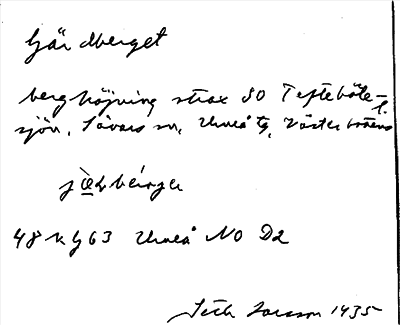 Gärdberget
berghöjning strax SO Tefteböle-
sjön, Sävars sn, Umeå tg, Västerbottens l.
48 Umeå NO D2
Seth Larsson 1935